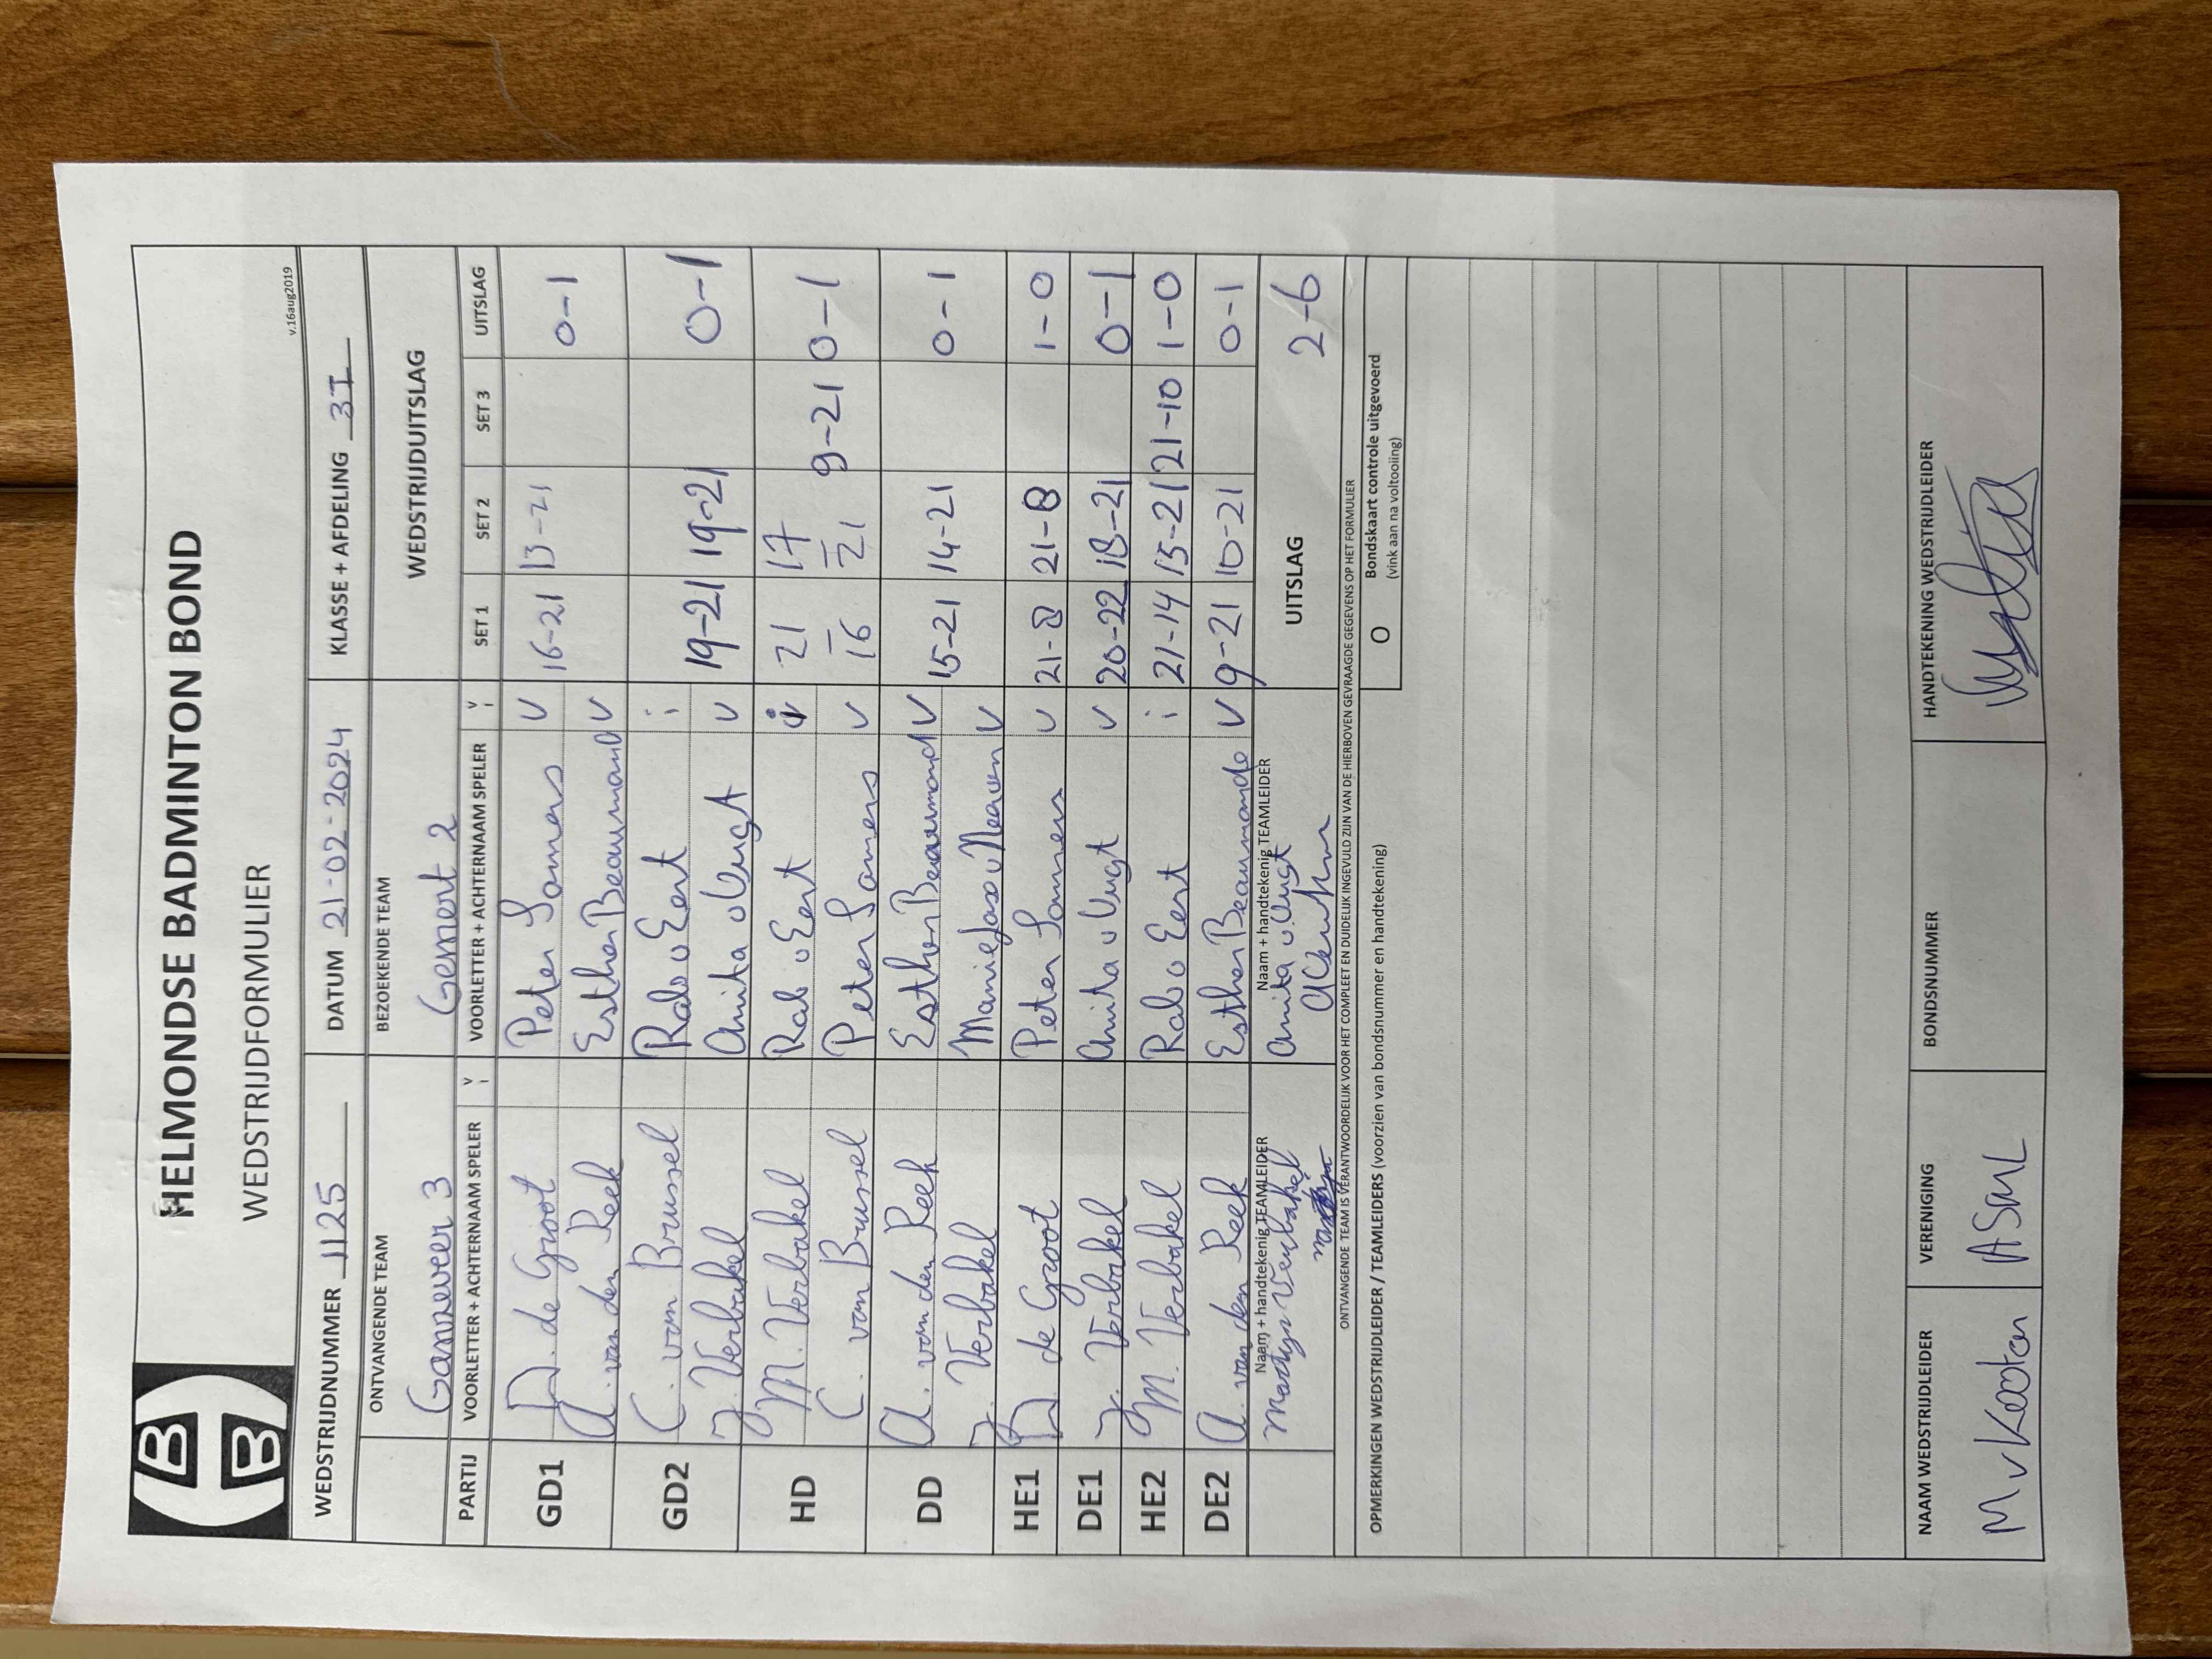 HELMONDSE BADMINTON BOND
WEDSTRIJDFORMULIER
v.16aug2019
WEDSTRIJDNUMMER 1125 DATUM 21-02-2024 KLASSE + AFDELING 3I
ONTVANGENDE TEAM BEZOEKENDE TEAM WEDSTRIJDUITSLAG
Ganzeveer 3 Gemert 2
PARTIJ VOORLETTER + ACHTERNAAM SPELER V i VOORLETTER + ACHTERNAAM SPELER V i SET 1 SET 2 SET 3 UITSLAG
GD1 D. de Groot Peter Somers V 16-21 13-21 0-1
A. van den Reek Esther Beaumond V
GD2 C. van Brussel Rob v Eert i
J. Verbakel Anita v Vugt V 19-21 19-21 0-1
HD M. Verbakel Rob v Eert i 21-16 17-21 9-21 0-1
C. van Brussel Peter Somers V
DD A. van den Reek Esther Beaumond V 15-21 14-21 0-1
J. Verbakel V
HE1 D. de Groot Peter Somers V 21-8 21-8 1-0
DE1 J. Verbakel Anita v Vugt V 20-22 18-21 0-1
HE2 M. Verbakel Rob v Eert i 21-14 15-21 21-10 1-0
DE2 A. van den Reek Esther Beaumonde V 9-21 10-21 0-1
Naam + handtekenig TEAMLEIDER Naam + handtekenig TEAMLEIDER UITSLAG 2-6
Martijn Verbakel Anita v. Vugt
ONTVANGENDE TEAM IS VERANTWOORDELIJK VOOR HET COMPLEET EN DUIDELIJK INGEVULD ZIJN VAN DE HIERBOVEN GEVRAAGDE GEGEVENS OP HET FORMULIER
OPMERKINGEN WEDSTRIJDLEIDER / TEAMLEIDERS (voorzien van bondsnummer en handtekening) O Bondskaart controle uitgevoerd
(vink aan na voltooiing)
NAAM WEDSTRIJDLEIDER VERENIGING BONDSNUMMER HANDTEKENING WEDSTRIJDLEIDER
M v Kooten